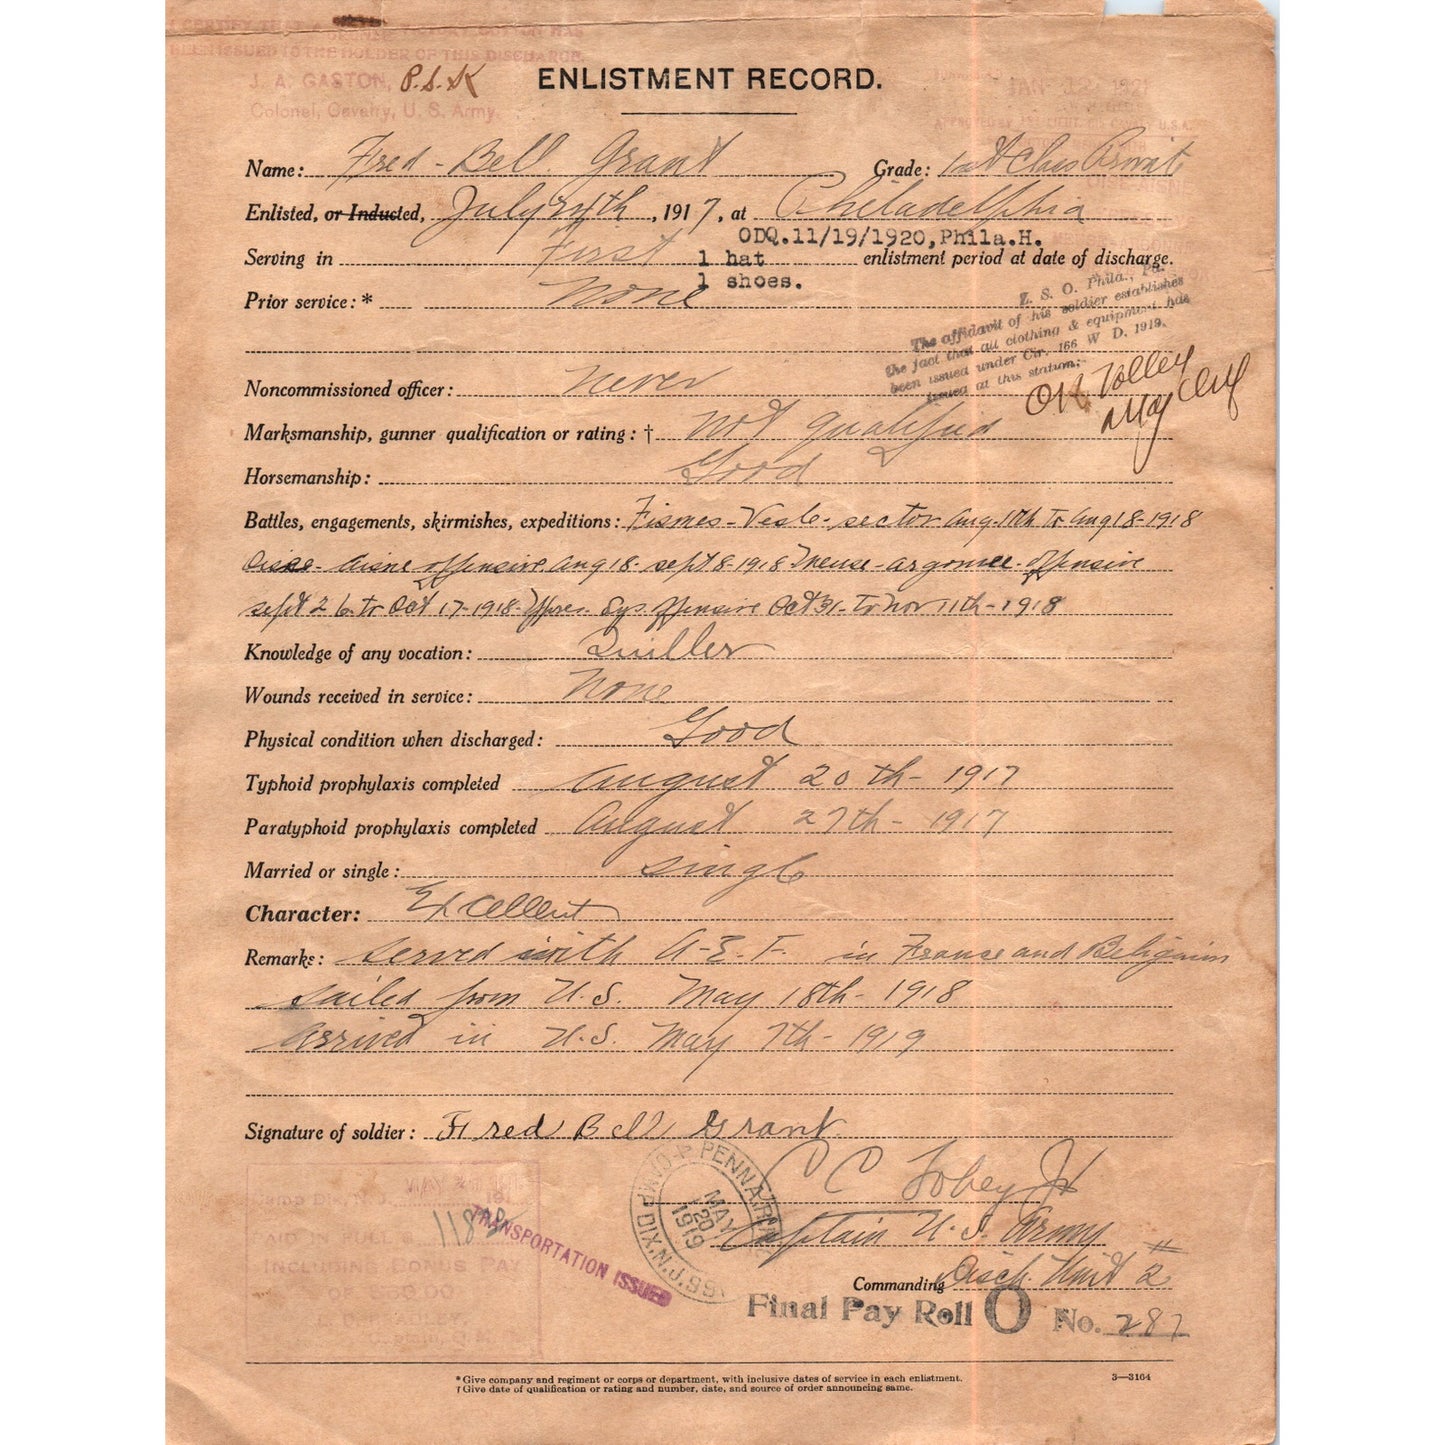 BEEN ISSUED TO THE HOLDER OF THIS DISCHARGE.
J. A. GASTON, P.S.K
Colonel, Cavalry, U. S. Army.
ENLISTMENT RECORD.
JAN 1921
Name: Fred - Bell Grant Grade: 1st Class Privit
Enlisted, or Inducted, July 24th, 1917, at Philadelphia
ODQ.11/19/1920,Phila.H.
Serving in First 1 hat enlistment period at date of discharge.
1 shoes.
Prior service: * None
Z. S. O. Phila., Pa.
The affidavit of his soldier establishes
the fact that all clothing & equipment has
been issued under Cir. 166 W D. 1919.
issued at this station:-
OK
Noncommissioned officer: Never
Marksmanship, gunner qualification or rating: † Not Qualified
Horsemanship: Good
Battles, engagements, skirmishes, expeditions: Fismes - Vesle - sector Aug. 11th to Aug 18 - 1918
Oise - Aisne offensive Aug 18 - sept 8 - 1918 Meuse - argonne - offensive
sept 26 to Oct 17 - 1918 - Ypres - Lys offensive Oct 31 - to Nov 11th - 1918
Knowledge of any vocation:
Wounds received in service: None
Physical condition when discharged: Good
Typhoid prophylaxis completed August 20th - 1917
Paratyphoid prophylaxis completed August 27th - 1917
Married or single: single
Character: Excellent
Remarks: served with A-E.F. in France and Beligium
sailed from U.S. May 18th - 1918
Arrived in U.S. May 7th - 1919
Signature of soldier: Fred Bell Grant
C C Tobey Jr
CAMP DIX, N.J. MAY 20 1919
Captain U.S. Army
TRANSPORTATION ISSUED
PAID IN FULL $
INCLUDING BONUS PAY
OF $60.00
Commanding Disch. Unit #2
Final Pay Roll O No. 287
* Give company and regiment or corps or department, with inclusive dates of service in each enlistment.
† Give date of qualification or rating and number, date, and source of order announcing same.
3—3164